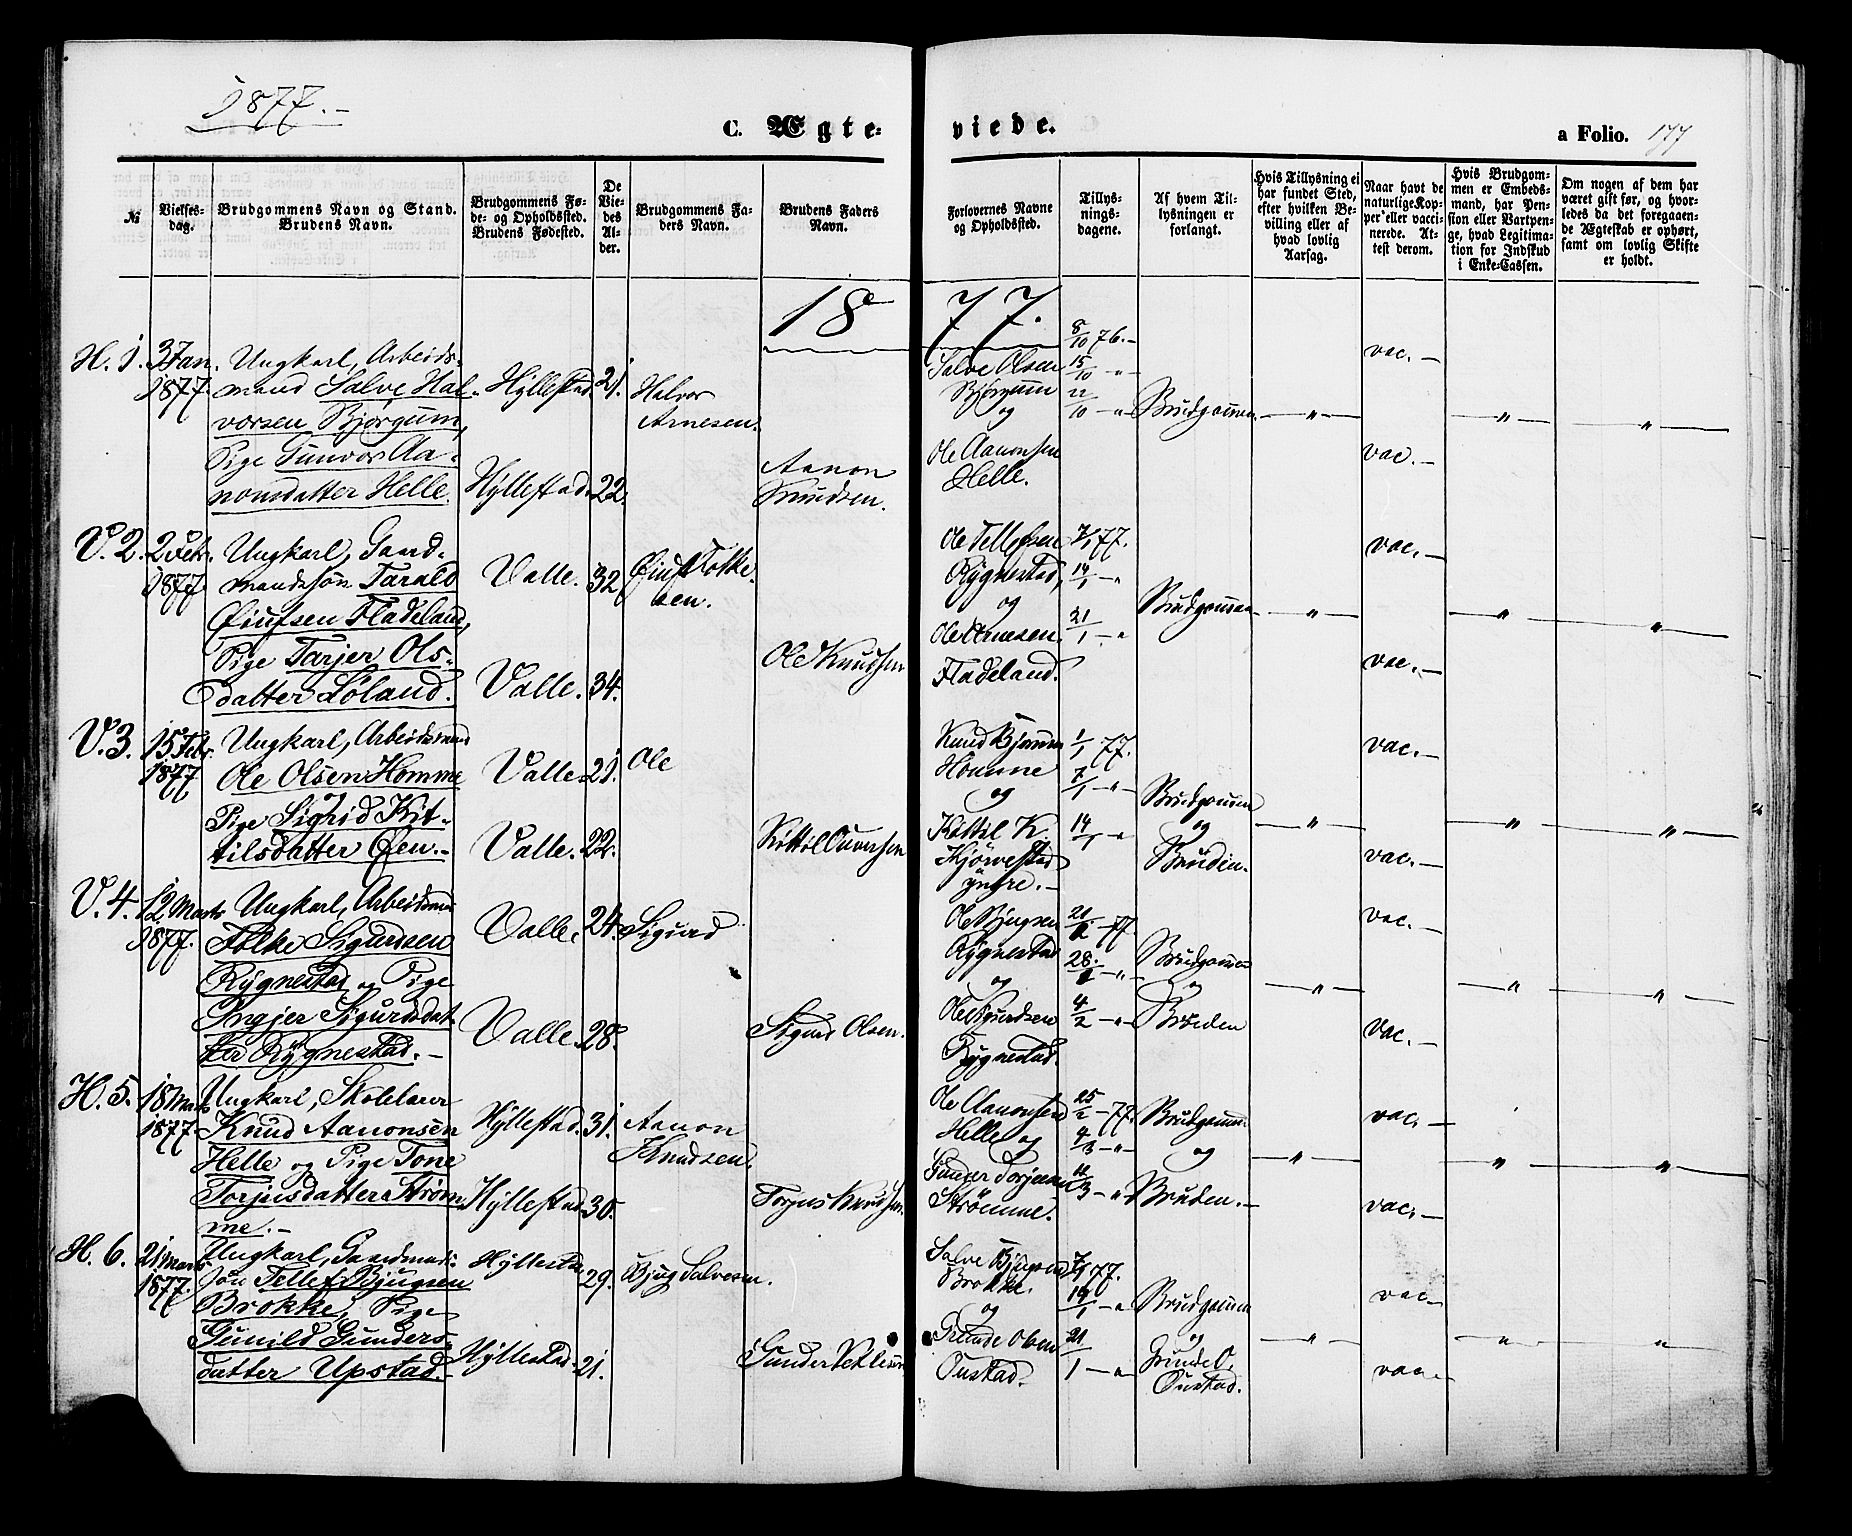 1877.-
C. Ægteviede. a Folio. 177
№
Vielsesdag.
Brudgommens Navn og Stand.
Brudens Navn.
Brudgommens Føde- og Opholdssted.
Brudens Fødested.
De Viedes Alder.
Brudgommens Faders Navn.
Brudens Faders Navn.
Forlovernes Navne og Opholdssted.
Tillysningsdagene.
Af hvem Tillysningen er forlangt.
Hvis Tillysning ei har fundet Sted, efter hvilken Bevilling eller af hvad lovlig Aarsag.
Naar havt de naturlige Kopper eller vaccinerede. Attest derom.
Hvis Brudgommen er Embedsmand, har Pension eller Vartpenge, hvad Legitimation for Indskud i Enke-Cassen.
Om nogen af dem har været gift før, og hvorledes da det foregaaende Ægteskab er ophørt, samt om lovlig Skifte er holdt.
1877.
H. 1. 3 Jan. 1877.
Ungkarl, Arbeids-
mand Salve Hal-
vorsen Bjørgum,
Pige Gunvor Aa-
nonsdatter Helle.
Hyllestad. 21.
Hyllestad. 22.
Halvor
Arnesen.
Aanon
Knudsen.
Salve Olsen
Bjørgum
og
Ole Aanonsen
Helle.
8/10 76.-
15/10 -"-
22/10 -"-
Brudgommen.
-"-
vac.-
vac.-
-"-
-"-
V. 2. 2 Febr. 1877
Ungkarl, Gaard-
mandssøn Tarald
Øiufsen Fladeland,
Pige Tarjer Ols-
datter Løland.
Valle. 32
Valle. 34.
Øiuf Folke-
sen.
Ole Knudsen
Ole Tellefsen
Rygnestad,
og
Ole Arnesen
Fladeland.
7/1 77.
14/1 -"
21/1 -"
Brudgommen
-"-
vac.-
vac.-
-"-
-"-
V. 3. 15 Febr. 1877
Ungkarl, Arbeidsmand
Ole Olsen Homme
Pige Sigrid Kit-
tilsdatter Øen.-
Valle. 21.
Valle. 22.
Ole
Kittil Ouvensen
Knud Bjørnsen
Homme
og
Kittil K.
Kjørvestad
yngre.-
1/1 77.
7/1 -"-
14/1 -"
Brudgommen
og
Bruden.
-"-
vac.-
vac.-
-"-
-"-
V. 4. 12 Marts 1877.
Ungkarl, Arbeidsmd
Folke Sigurdsen
Rygnestad og Pige
Ingjer Sigurdsdat-
ter Rygnestad.-
Valle. 24.
Valle. 28.
Sigurd
Sigurd Olsen.
Ole Bjugsen
Rygnestad
og
Ole Sigurdsen
Rygnestad.
4/2 -"-
Brudgommen
og
Bruden
-"-
vac.-
vac.-
-"-
-"-
H. 5. 18 Marts 1877.
Ungkarl, Skolelærer
Knud Aanonsen
Helle og Pige Tone
Torjusdatter Strøm-
me.-
Hyllestad. 31.
Hyllestad. 30.
Aanon
Knudsen.
Torjus Knudsen.
Ole Aanonsen
Helle og
Gunder Torjussen
Strömme.
25/2 -77.
4/3 -"-
11/3 -"
Brudgommen
og
Bruden.-
-"-
vac.-
vac.-
-"-
-"-
H. 6. 21 Marts 1877.
Ungkarl, Gaardmands-
søn Tellef Bjugsen
Brokke, Pige
Gunild Gunders-
datter Upstad.-
Hyllestad 29.
Hyllestad. 21.
Bjug Salvesen.
Gunder Vetlesen
Salve Bjugsen
Brokke.
og
Grunde Olsen
Oustad.
7/1 77.
14/1 -"
21/1 -"-
Brudgommen
og
Grunde O.
Oustad.
-"-
vac-
vac-
-"-
-"-